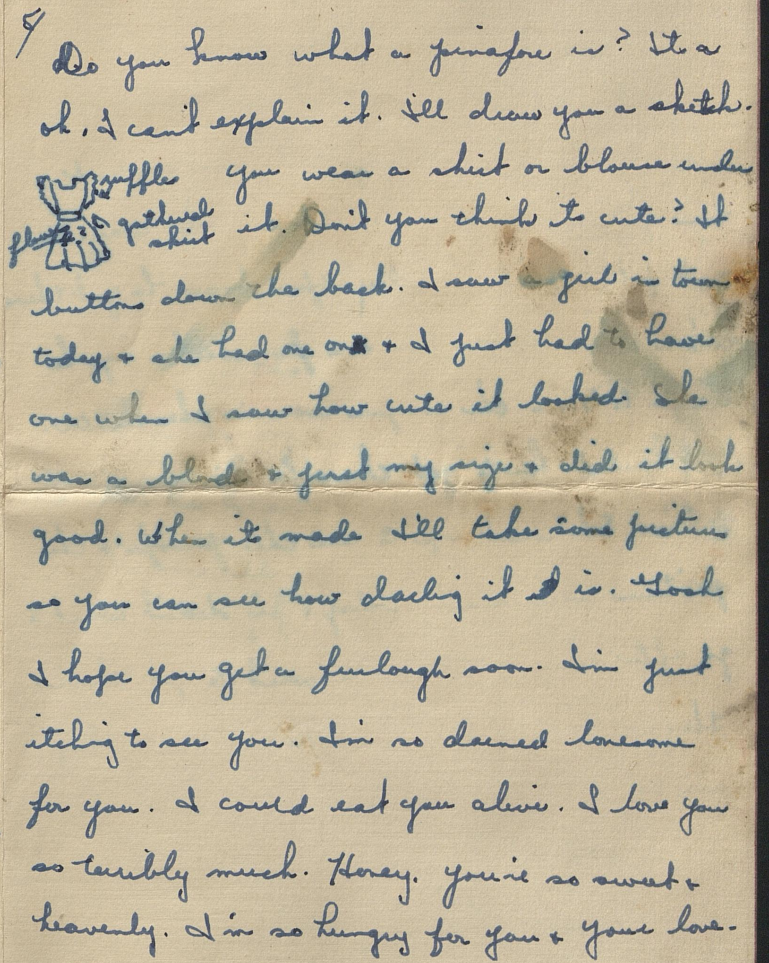 5/
Do you know what a pinafore is? Its a
oh, I can't explain it. I'll draw you a sketch.
ruffles you wear a shirt or blouse under
gathered skirt it. Don't you think its cute? It
buttons down the back. I saw a girl in town
today + she had one on + I just had to have
one when I saw how cute it looked. She
was a blond + just my size + did it look
good. When its made I'll take some pictures
so you can see how darlig it is. Gosh
I hope you get a furlough soon. I'm just
itching to see you. I'm so darned lonesome
for you. I could eat you alive. I love you
so terribly much. Honey, you're so sweet +
heavenly. I'm so hungry for you + your love-